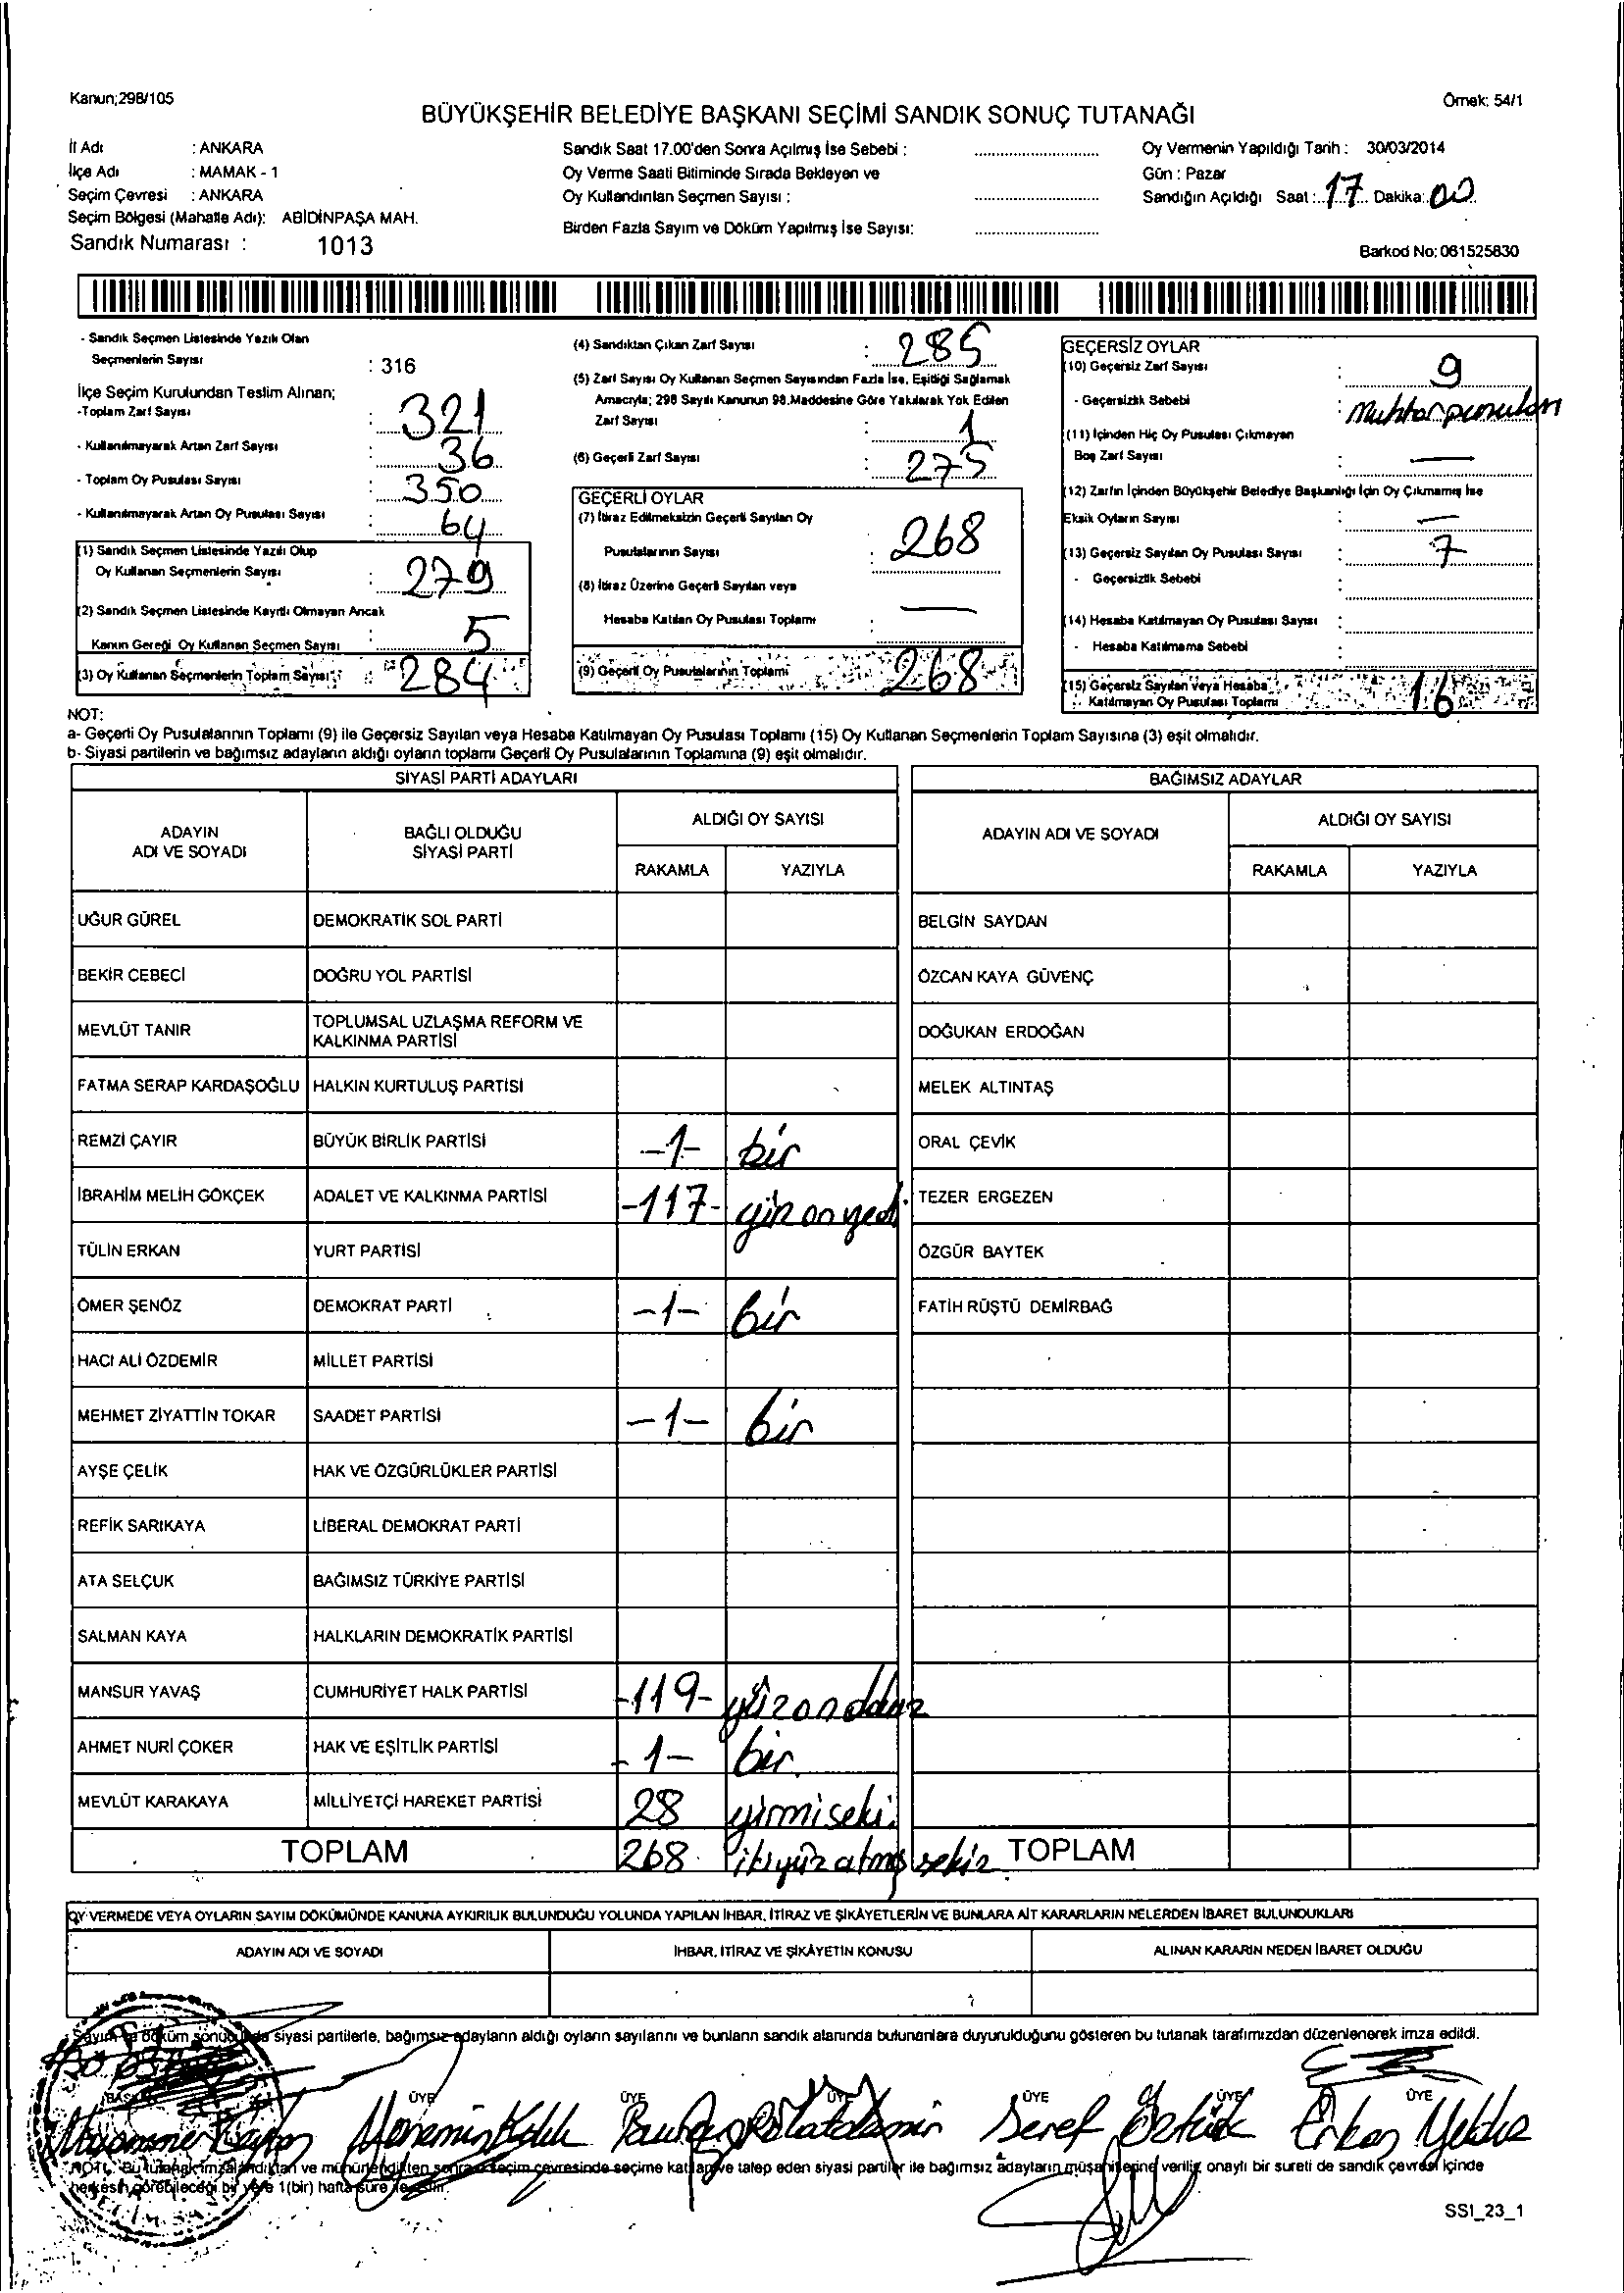 Kanun;298/105
Örnek: 54/1
BÜYÜKŞEHİR BELEDİYE BAŞKANI SEÇİMİ SANDIK SONUÇ TUTANAĞI
İl Adı : ANKARA
İlçe Adı : MAMAK - 1
Seçim Çevresi : ANKARA
Seçim Bölgesi (Mahalle Adı): ABİDİNPAŞA MAH.
Sandık Numarası : 1013
Sandık Saat 17.00'den Sonra Açılmış İse Sebebi :
Oy Verme Saati Bitiminde Sırada Bekleyen ve
Oy Kullandırılan Seçmen Sayısı :
Birden Fazla Sayım ve Döküm Yapılmış İse Sayısı:
Oy Vermenin Yapıldığı Tarih : 30/03/2014
Gün : Pazar
Sandığın Açıldığı Saat : 17 Dakika: 00
Barkod No: 061525830
- Sandık Seçmen Listesinde Yazılı Olan
Seçmenlerin Sayısı : 316
İlçe Seçim Kurulundan Teslim Alınan;
-Toplam Zarf Sayısı : 321
- Kullanılmayarak Artan Zarf Sayısı : 36
- Toplam Oy Pusulası Sayısı : 350
- Kullanılmayarak Artan Oy Pusulası Sayısı : 64
(1) Sandık Seçmen Listesinde Yazılı Olup
Oy Kullanan Seçmenlerin Sayısı : 279
(2) Sandık Seçmen Listesinde Kayıtlı Olmayan Ancak
Kanun Gereği Oy Kullanan Seçmen Sayısı : 5
(3) Oy Kullanan Seçmenlerin Toplam Sayısı : 284
(4) Sandıktan Çıkan Zarf Sayısı : 285
(5) Zarf Sayısı Oy Kullanan Seçmen Sayısından Fazla İse, Eşitliği Sağlamak
Amacıyla; 298 Sayılı Kanunun 98.Maddesine Göre Yakılarak Yok Edilen
Zarf Sayısı : 1
(6) Geçerli Zarf Sayısı : 275
GEÇERLİ OYLAR
(7) İtiraz Edilmeksizin Geçerli Sayılan Oy
Pusulalarının Sayısı : 268
(8) İtiraz Üzerine Geçerli Sayılan veya
Hesaba Katılan Oy Pusulası Toplamı : —
(9) Geçerli Oy Pusulalarının Toplamı : 268
GEÇERSİZ OYLAR
(10) Geçersiz Zarf Sayısı : 9
- Geçersizlik Sebebi : Muhtar pusuladan
(11) İçinden Hiç Oy Pusulası Çıkmayan
Boş Zarf Sayısı : —
(12) Zarfın İçinden Büyükşehir Belediye Başkanlığı İçin Oy Çıkmamış İse
Eksik Oyların Sayısı : —
(13) Geçersiz Sayılan Oy Pusulası Sayısı : 7
- Geçersizlik Sebebi :
(14) Hesaba Katılmayan Oy Pusulası Sayısı :
- Hesaba Katılmama Sebebi :
(15) Geçersiz Sayılan veya Hesaba
Katılmayan Oy Pusulası Toplamı : 16
NOT:
a- Geçerli Oy Pusulalarının Toplamı (9) ile Geçersiz Sayılan veya Hesaba Katılmayan Oy Pusulası Toplamı (15) Oy Kullanan Seçmenlerin Toplam Sayısına (3) eşit olmalıdır.
b- Siyasi partilerin ve bağımsız adayların aldığı oyların toplamı Geçerli Oy Pusulalarının Toplamına (9) eşit olmalıdır.
SİYASİ PARTİ ADAYLARI
ADAYIN ADI VE SOYADI
BAĞLI OLDUĞU SİYASİ PARTİ
ALDIĞI OY SAYISI
RAKAMLA YAZIYLA
UĞUR GÜREL DEMOKRATİK SOL PARTİ
BEKİR CEBECİ DOĞRU YOL PARTİSİ
MEVLÜT TANIR TOPLUMSAL UZLAŞMA REFORM VE KALKINMA PARTİSİ
FATMA SERAP KARDAŞOĞLU HALKIN KURTULUŞ PARTİSİ
REMZİ ÇAYIR BÜYÜK BİRLİK PARTİSİ -1- bir
İBRAHİM MELİH GÖKÇEK ADALET VE KALKINMA PARTİSİ -117- yüz on yedi
TÜLİN ERKAN YURT PARTİSİ
ÖMER ŞENÖZ DEMOKRAT PARTİ -1- bir
HACI ALİ ÖZDEMİR MİLLET PARTİSİ
MEHMET ZİYATTİN TOKAR SAADET PARTİSİ -1- bir
AYŞE ÇELİK HAK VE ÖZGÜRLÜKLER PARTİSİ
REFİK SARIKAYA LİBERAL DEMOKRAT PARTİ
ATA SELÇUK BAĞIMSIZ TÜRKİYE PARTİSİ
SALMAN KAYA HALKLARIN DEMOKRATİK PARTİSİ
MANSUR YAVAŞ CUMHURİYET HALK PARTİSİ -119- yüz on dokuz
AHMET NURİ ÇOKER HAK VE EŞİTLİK PARTİSİ -1- bir
MEVLÜT KARAKAYA MİLLİYETÇİ HAREKET PARTİSİ 28 yirmi seki
TOPLAM 268 ikiyüz atmış sekiz
BAĞIMSIZ ADAYLAR
ADAYIN ADI VE SOYADI
ALDIĞI OY SAYISI
RAKAMLA YAZIYLA
BELGİN SAYDAN
ÖZCAN KAYA GÜVENÇ
DOĞUKAN ERDOĞAN
MELEK ALTINTAŞ
ORAL ÇEVİK
TEZER ERGEZEN
ÖZGÜR BAYTEK
FATİH RÜŞTÜ DEMİRBAĞ
TOPLAM
OY VERMEDE VEYA OYLARIN SAYIM DÖKÜMÜNDE KANUNA AYKIRILIK BULUNDUĞU YOLUNDA YAPILAN İHBAR, İTİRAZ VE ŞİKÂYETLERİN VE BUNLARA AİT KARARLARIN NELERDEN İBARET BULUNDUKLARI
ADAYIN ADI VE SOYADI
İHBAR, İTİRAZ VE ŞİKÂYETİN KONUSU
ALINAN KARARIN NEDEN İBARET OLDUĞU
Sayım ve döküm sonucunda siyasi partilerle, bağımsız adayların aldığı oyların sayılarını ve bunların sandık alanında bulunanlara duyurulduğunu gösteren bu tutanak tarafımızdan düzenlenerek imza edildi.
BAŞKAN ÜYE ÜYE ÜYE ÜYE ÜYE ÜYE
Şeref Öztürk Erkan Yıldız
NOT: Bu tutanak imzalandıktan ve mühürlendikten sonra seçim çevresinde seçime katılan ve talep eden siyasi partiler ile bağımsız adayların müşahitlerine verilir, onaylı bir sureti de sandık çevresi içinde
herkesin görebileceği bir yere 1(bir) hafta süre ile asılır.
SSI_23_1